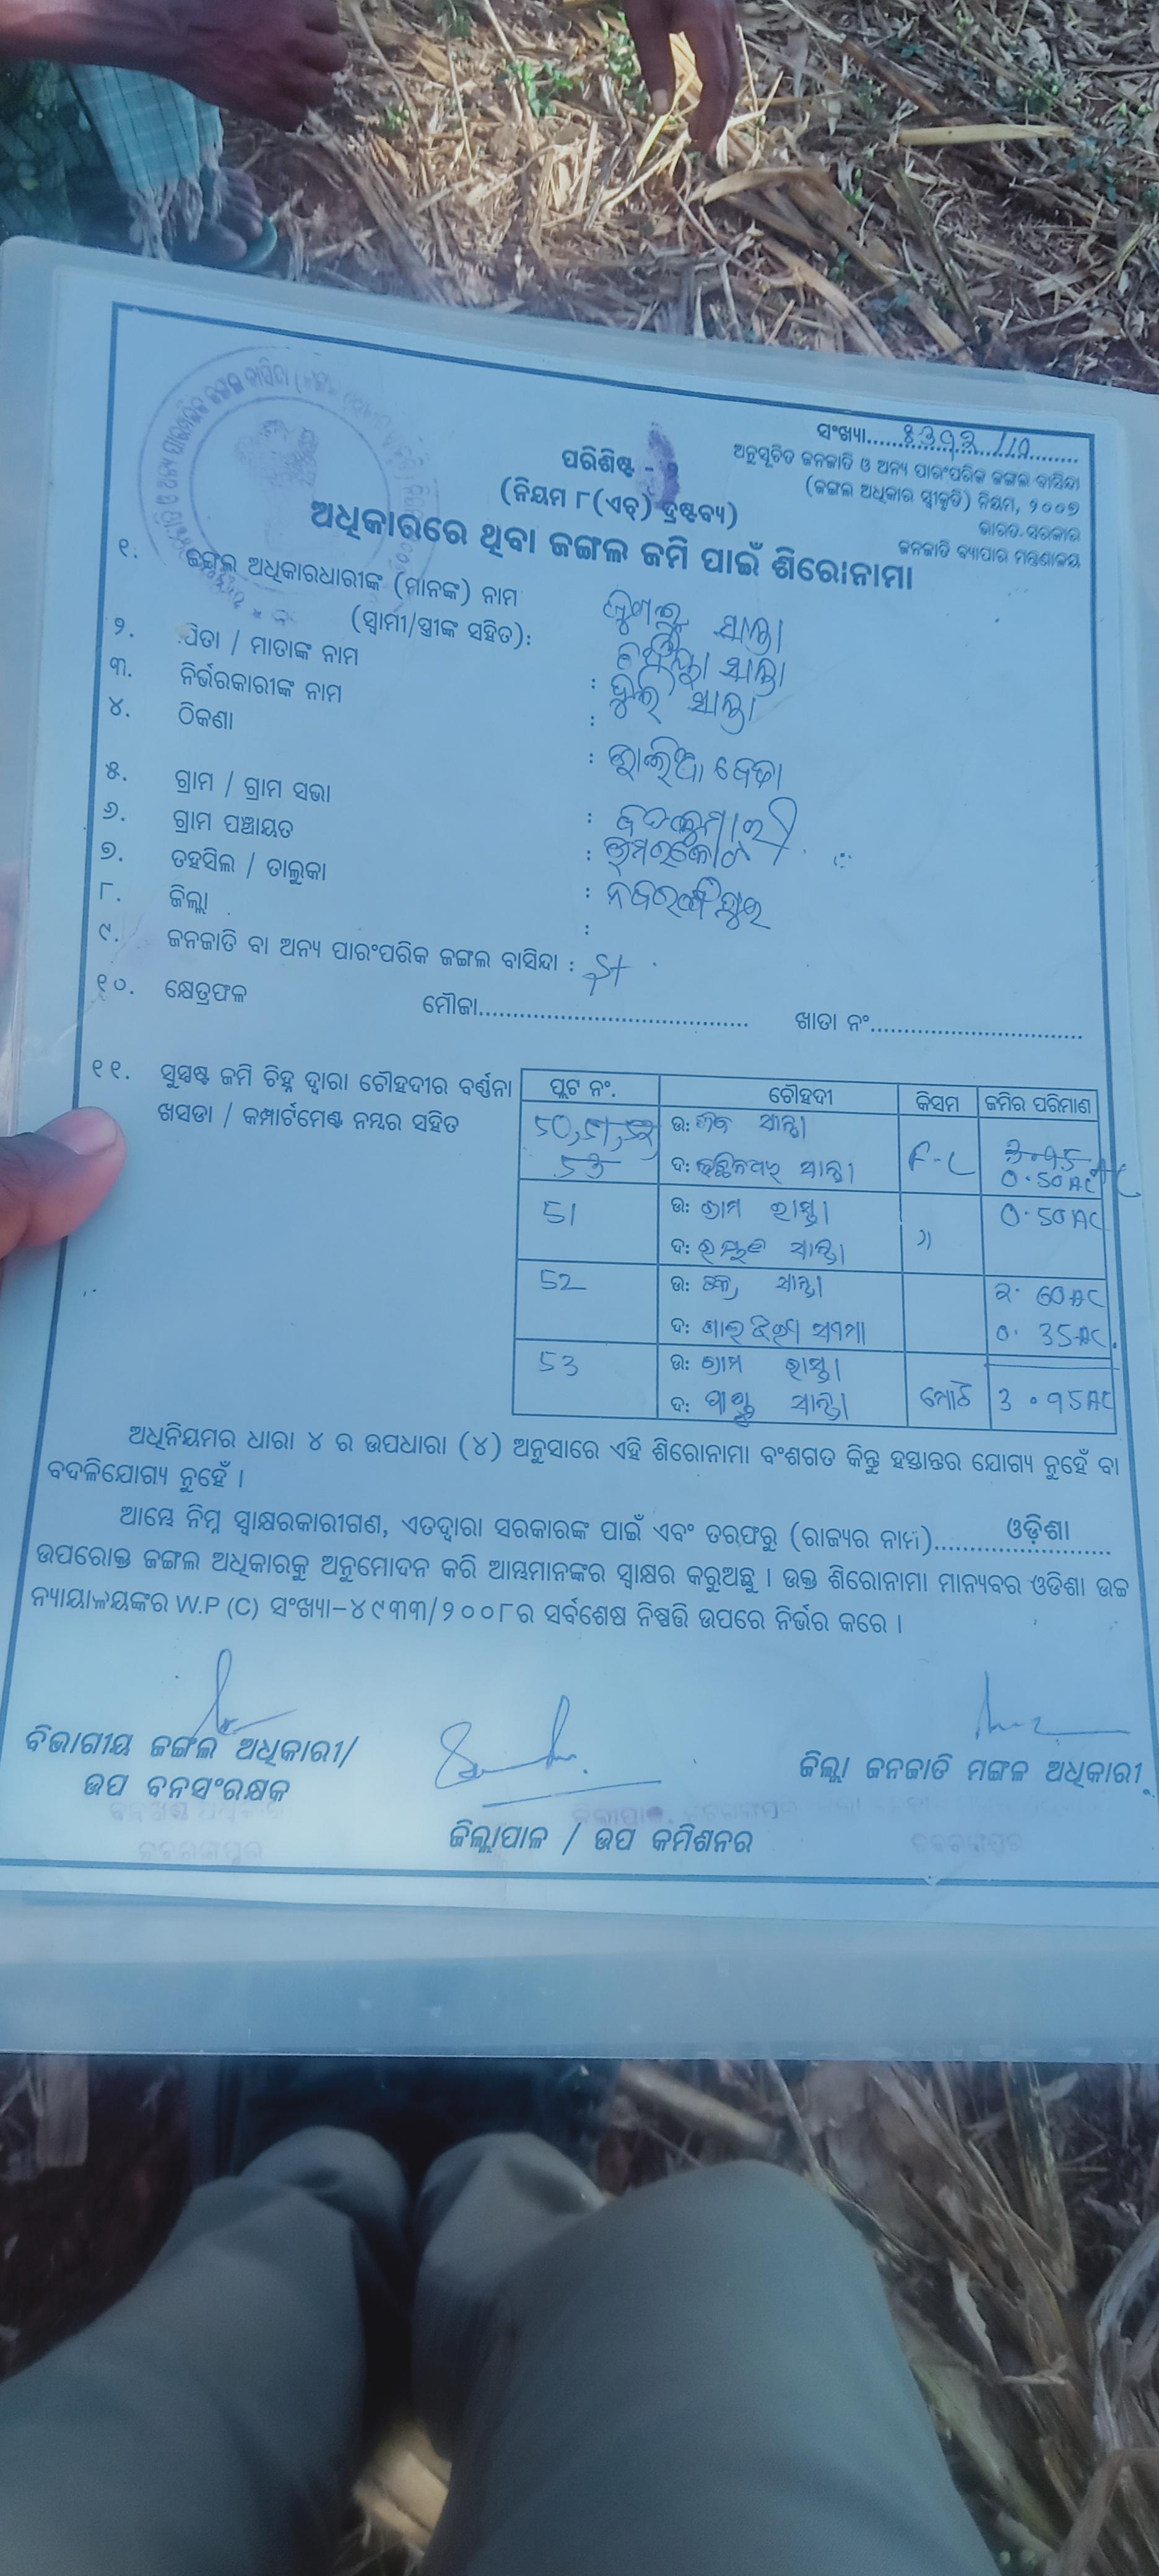 ସଂଖ୍ୟା..........
ଅନୁସୂଚିତ ଜନଜାତି ଓ ଅନ୍ୟ ପାରଂପରିକ ଜଙ୍ଗଲ ବାସିନ୍ଦା
(ଜଙ୍ଗଲ ଅଧିକାର ସ୍ୱୀକୃତି) ନିୟମ, ୨୦୦୭
ଭାରତ ସରକାର
ଜନଜାତି ବ୍ୟାପାର ମନ୍ତ୍ରଣାଳୟ
ପରିଶିଷ୍ଟ -
(ନିୟମ ୮(ଏଚ୍) ଦ୍ରଷ୍ଟବ୍ୟ)
ଅଧିକାରରେ ଥିବା ଜଙ୍ଗଲ ଜମି ପାଇଁ ଶିରୋନାମା
୧. ଜଙ୍ଗଲ ଅଧିକାରଧାରୀଙ୍କ (ମାନଙ୍କ) ନାମ
(ସ୍ୱାମୀ/ସ୍ତ୍ରୀଙ୍କ ସହିତ): ସାନ୍ତା
୨. ପିତା / ମାତାଙ୍କ ନାମ : ସାନ୍ତା
୩. ନିର୍ଭରକାରୀଙ୍କ ନାମ : ସାନ୍ତା
୪. ଠିକଣା :
୫. ଗ୍ରାମ / ଗ୍ରାମ ସଭା :
୬. ଗ୍ରାମ ପଞ୍ଚାୟତ :
୭. ତହସିଲ / ତାଲୁକା : ଉମରକୋଟ
୮. ଜିଲ୍ଲା : ନବରଙ୍ଗପୁର
୯. ଜନଜାତି ବା ଅନ୍ୟ ପାରଂପରିକ ଜଙ୍ଗଲ ବାସିନ୍ଦା : ST
୧୦. କ୍ଷେତ୍ରଫଳ ମୌଜା.......... ଖାତା ନଂ..........
୧୧. ସୁସ୍ପଷ୍ଟ ଜମି ଚିହ୍ନ ଦ୍ୱାରା ଚୌହଦୀର ବର୍ଣ୍ଣନା
ଖସଡା / କମ୍ପାର୍ଟମେଣ୍ଟ ନମ୍ବର ସହିତ
ପ୍ଲଟ ନଂ. ଚୌହଦୀ କିସମ ଜମିର ପରିମାଣ
50, 51, 52, ଉ: ସାନ୍ତା F-L 3.95 AC
53 ଦ: ସାନ୍ତା 0.50 AC
51 ଉ: ଗ୍ରାମ ରାସ୍ତା 0.50 AC
ଦ: ସାନ୍ତା "
52 ଉ: ସାନ୍ତା 2.60 AC
ଦ: ସୀମା 0.35 AC.
53 ଉ: ଗ୍ରାମ ରାସ୍ତା
ଦ: ସାନ୍ତା ମୋଟ 3.95 AC
ଅଧିନିୟମର ଧାରା ୪ ର ଉପଧାରା (୪) ଅନୁସାରେ ଏହି ଶିରୋନାମା ବଂଶଗତ କିନ୍ତୁ ହସ୍ତାନ୍ତର ଯୋଗ୍ୟ ନୁହେଁ ବା
ବଦଳିଯୋଗ୍ୟ ନୁହେଁ ।
ଆମ୍ଭେ ନିମ୍ନ ସ୍ୱାକ୍ଷରକାରୀଗଣ, ଏତଦ୍ଵାରା ସରକାରଙ୍କ ପାଇଁ ଏବଂ ତରଫରୁ (ରାଜ୍ୟର ନାମ)..........ଓଡ଼ିଶା
ଉପରୋକ୍ତ ଜଙ୍ଗଲ ଅଧିକାରକୁ ଅନୁମୋଦନ କରି ଆମ୍ଭମାନଙ୍କର ସ୍ୱାକ୍ଷର କରୁଅଛୁ । ଉକ୍ତ ଶିରୋନାମା ମାନ୍ୟବର ଓଡିଶା ଉଚ୍ଚ
ନ୍ୟାୟାଳୟଙ୍କର W.P (C) ସଂଖ୍ୟା-୪୯୩୩/୨୦୦୮ର ସର୍ବଶେଷ ନିଷ୍ପତ୍ତି ଉପରେ ନିର୍ଭର କରେ ।
ବିଭାଗୀୟ ଜଙ୍ଗଲ ଅଧିକାରୀ/
ଉପ ବନସଂରକ୍ଷକ
ଜିଲ୍ଲାପାଳ / ଉପ କମିଶନର
ଜିଲ୍ଲା ଜନଜାତି ମଙ୍ଗଳ ଅଧିକାରୀ